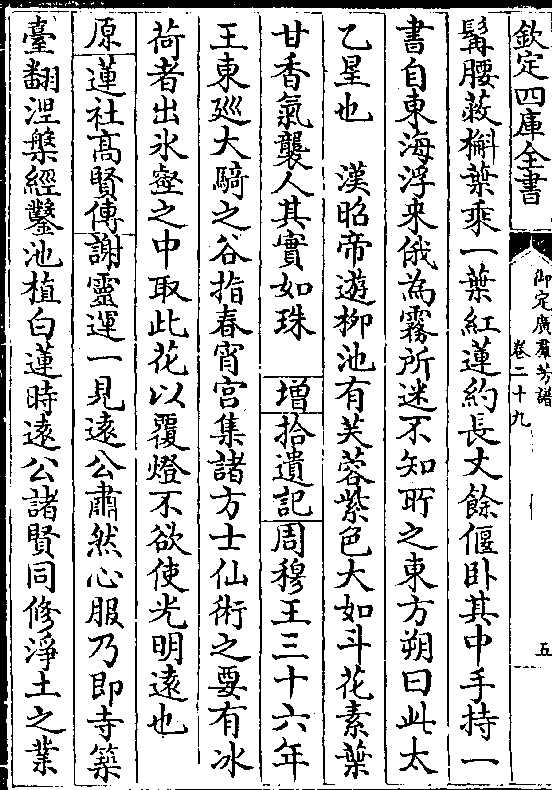 欽定四庫全書
御定廣羣芳譜
卷二十九
五
髯腰蔽槲葉乘一葉紅蓮約長丈餘偃卧其中手持一
書自東海浮來俄為霧所迷不知所之東方朔曰此太
乙星也　漢昭帝遊栁池有芙蓉紫色大如斗花素葉
甘香氣襲人其實如珠　增拾遺記周穆王三十六年
王東廵大騎之谷指春宵宮集諸方士仙術之要有冰
荷者出氷壑之中取此花以覆燈不欲使光明遠也
原蓮社高賢傳謝靈運一見遠公肅然心服乃即寺築
臺翻涅槃經鑿池植白蓮時遠公諸賢同修淨土之業